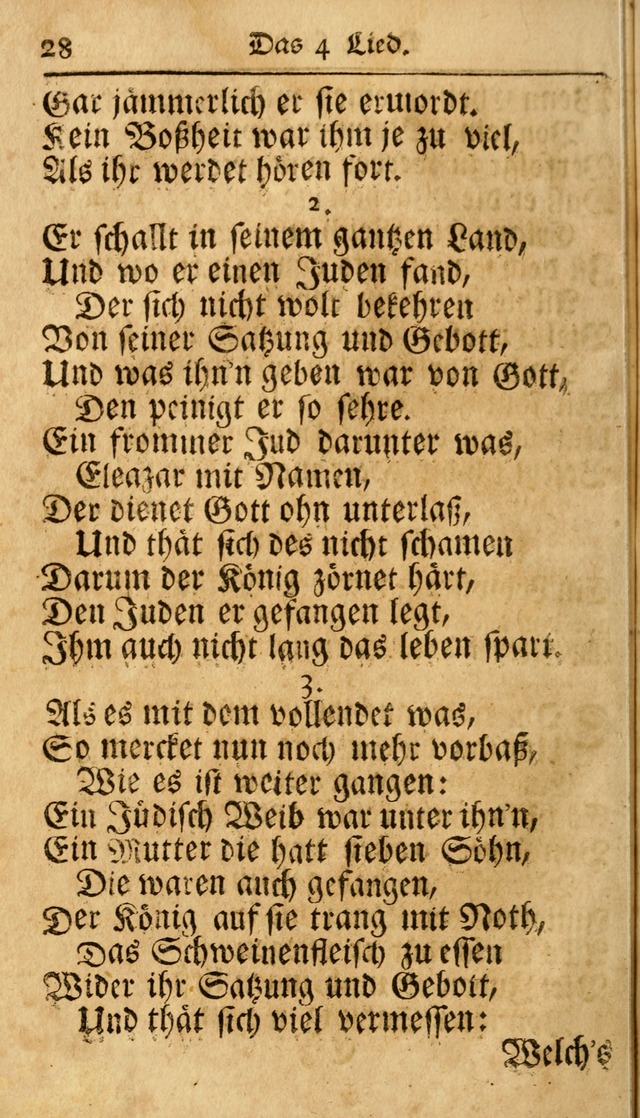 28 Das 4 Lied.
Gar jämmerlich er sie ermordt.
Kein Boßheit war ihm je zu viel,
Als ihr werdet hören fort.
2.
Er schallt in seinem gantzen Land,
Und wo er einen Juden fand,
Der sich nicht wolt bekehren
Von seiner Satzung und Gebott,
Und was ihn'n geben war von Gott,
Den peinigt er so sehre.
Ein frommer Jud darunter was,
Eleazar mit Namen,
Der dienet Gott ohn unterlaß,
Und thät sich des nicht schamen
Darum der König zörnet härt,
Den Juden er gefangen legt,
Ihm auch nicht lang das leben spart.
3.
Als es mit dem vollendet was,
So mercket nun noch mehr vorbaß,
Wie es ist weiter gangen:
Ein Jüdisch Weib war unter ihn'n,
Ein Mutter die hatt sieben Söhn,
Die waren auch gefangen,
Der König auf sie trang mit Noth,
Das Schweinenfleisch zu essen
Wider ihr Satzung und Gebott,
Und thät sich viel vermessen:
Welch's